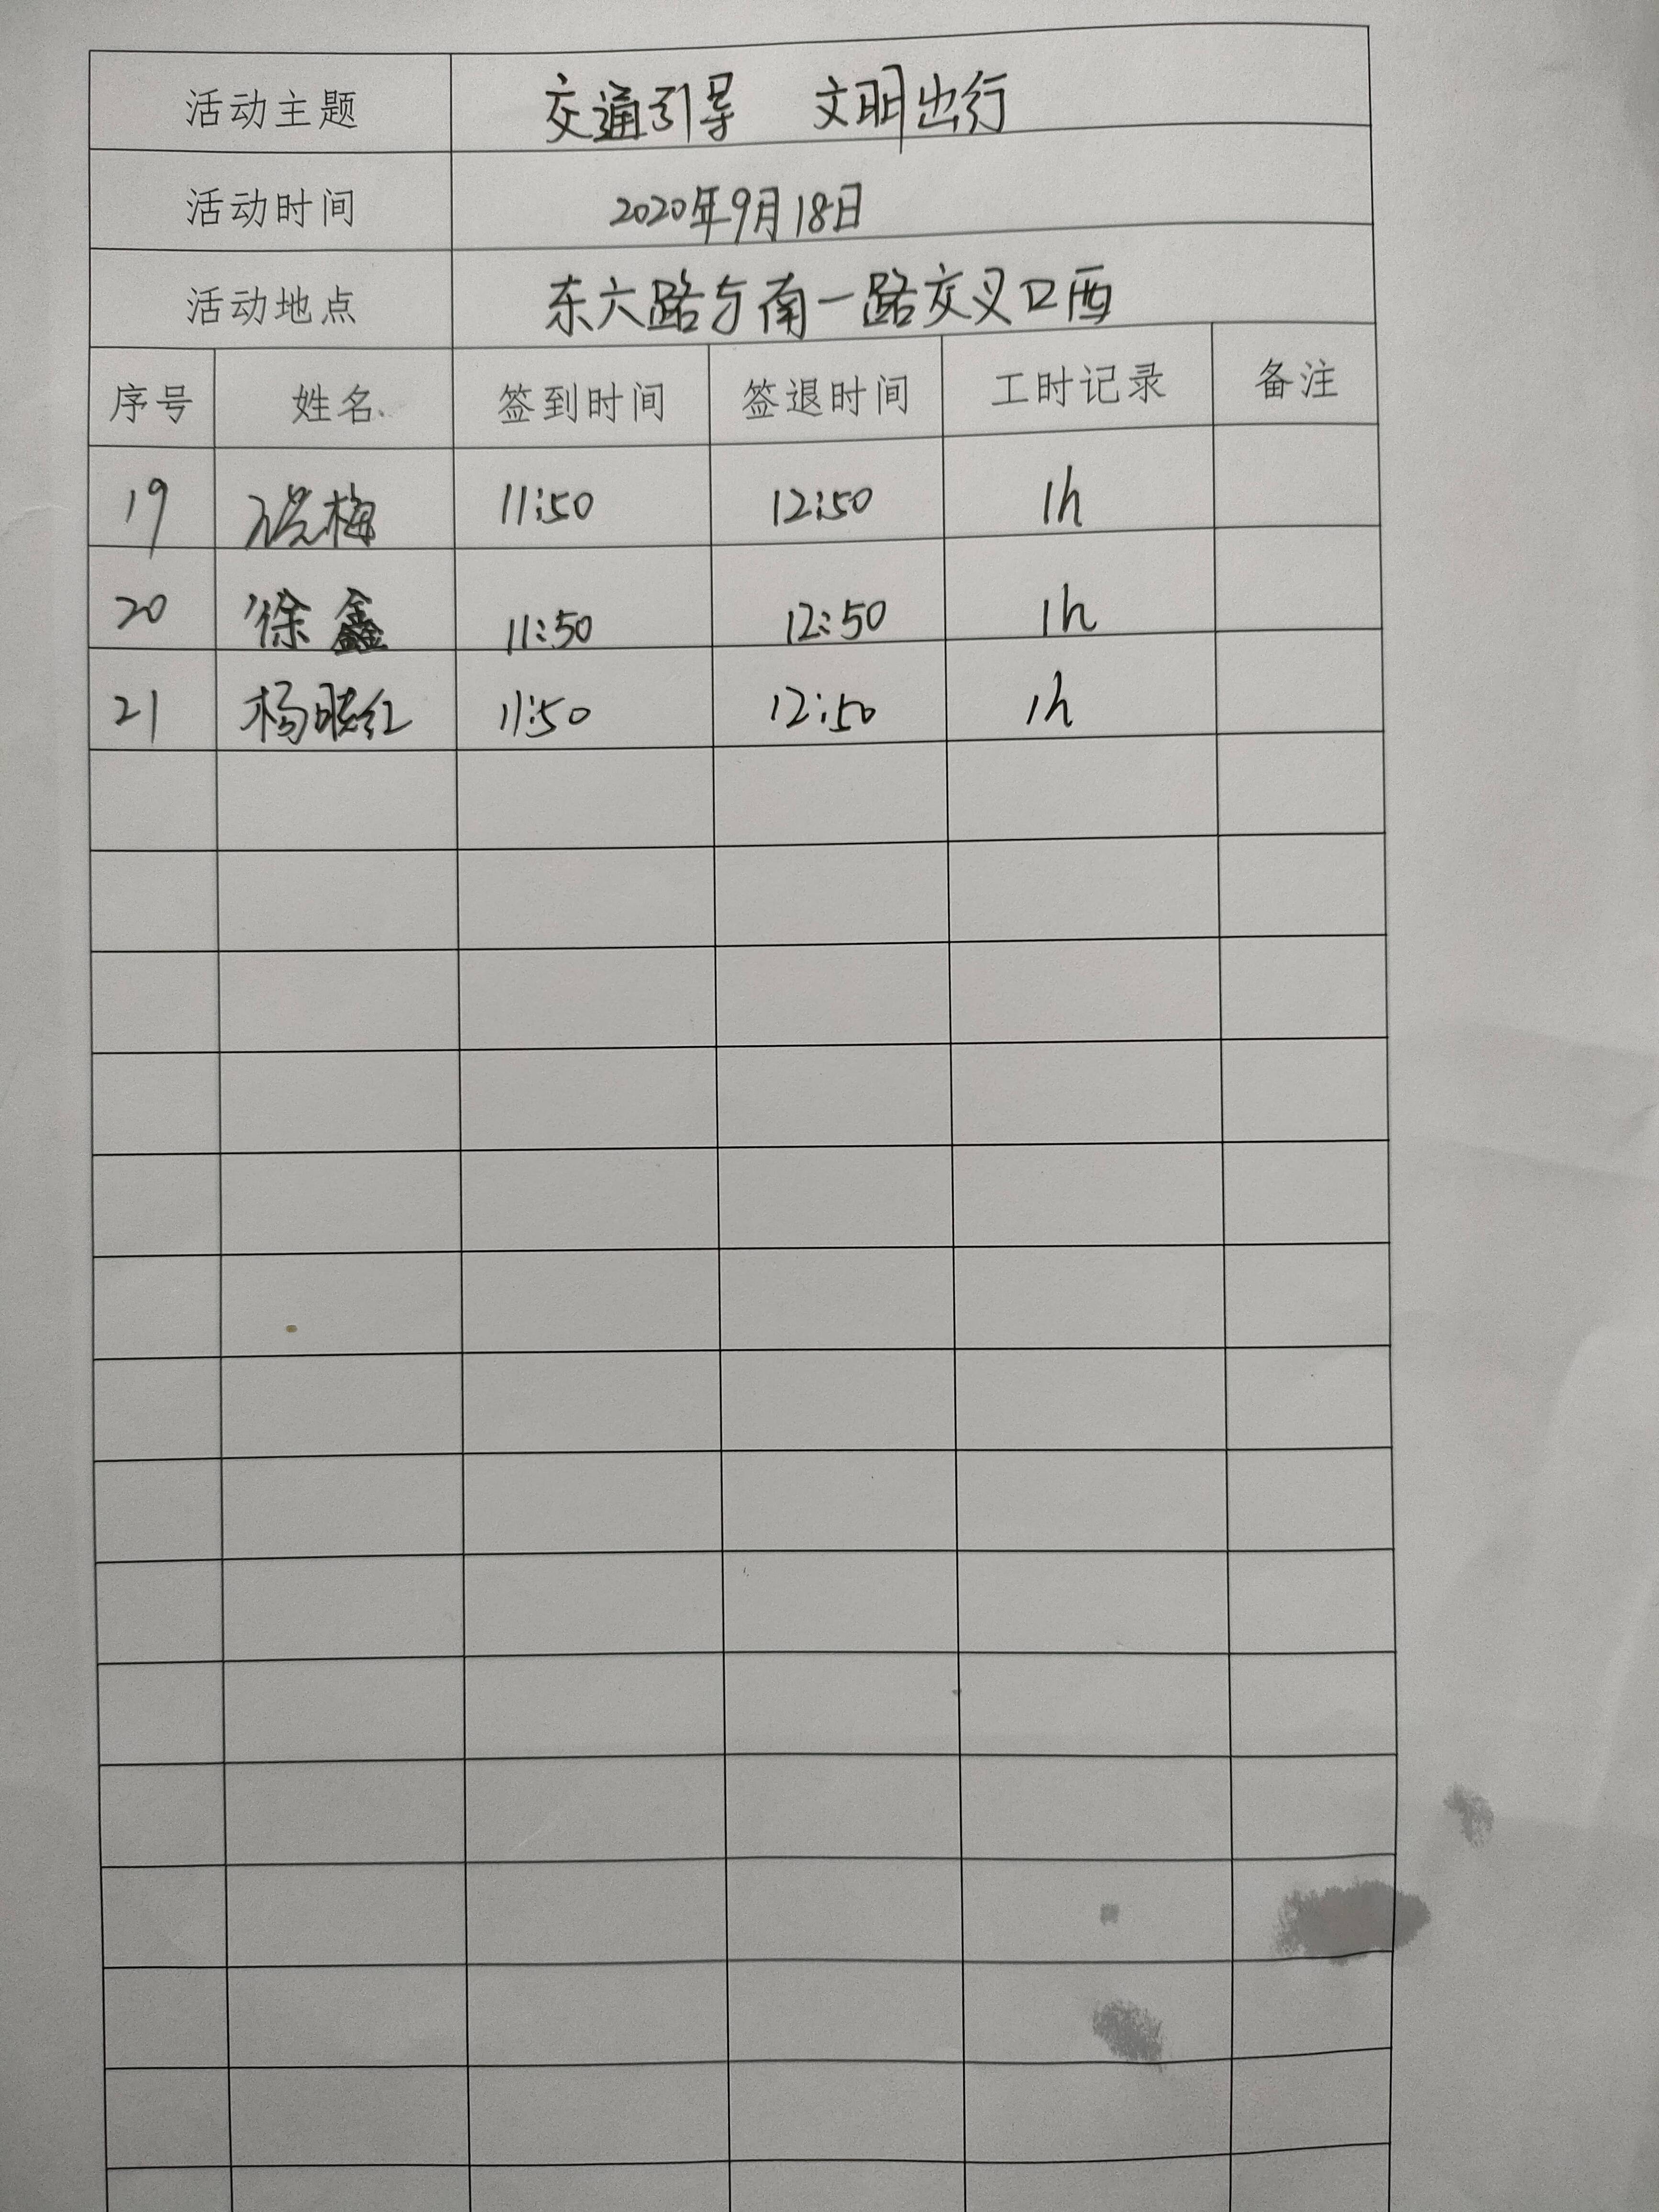 活动主题 交通引导 文明出行
活动时间 2020年9月18日
活动地点 东六路与南一路交叉口西
序号 姓名 签到时间 签退时间 工时记录 备注
19 梅 11:50 12:50 1h
20 徐鑫 11:50 12:50 1h
21 杨晓红 11:50 12:50 1h